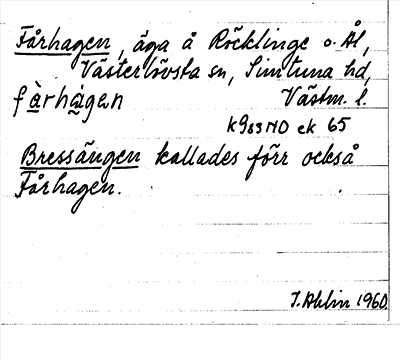 Fårhagen, äga å Röcklinge o. Ål,
Västerlövsta sn, Simtuna hd,
fàrhàgen Västm. l.
K983NO ek 65
Bressängen kallades förr också
Fårhagen.
J. Ahlin 1960.